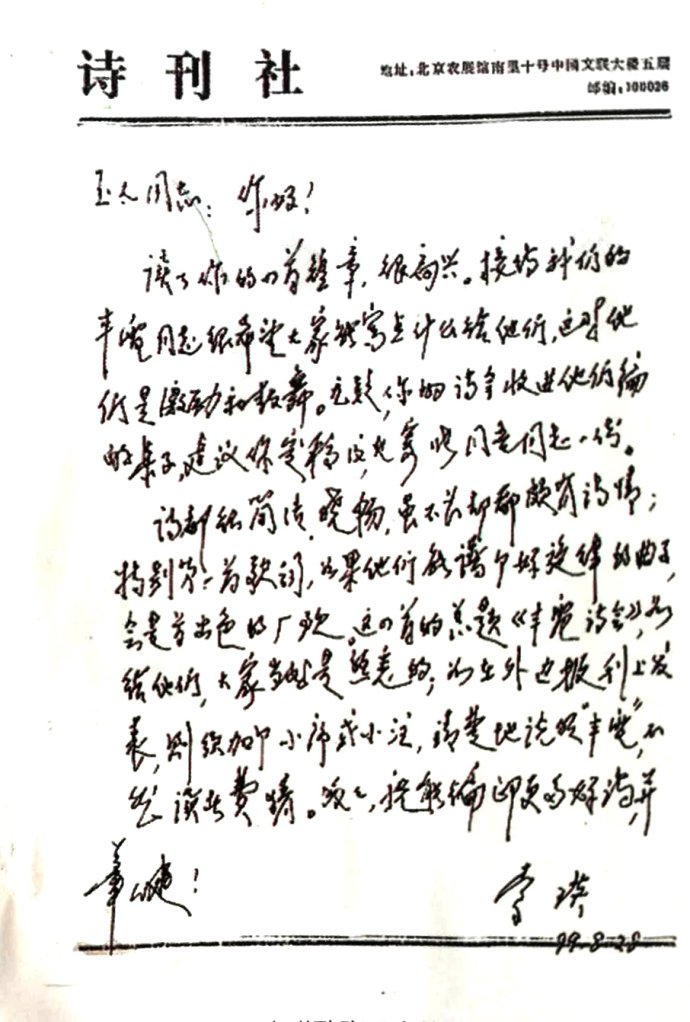 诗刊社
地址:北京农展馆南里十号中国文联大楼五层
邮编:100026
同志:你好!
读了你的四首华章,很高兴。接待我们的
丰宽同志很希望大家能写点什么给他们,这对他
们是激励和鼓舞。无疑,你的诗会收进他们编
的集子,建议你定稿后,先寄 同志一份。
诗都很简洁、晓畅,虽不长却都颇有诗情;
特别第一首歌词,如果他们能谱个好旋律的曲子,
会是首出色的厂歌。这四首的总题《丰宽诗会》,如
给他们,大家当然是熟悉的;如在外边报刊上发
表,则须加个小序或小注,清楚地说明“丰宽”,不
然读者费猜。匆匆,祝能编印更多好诗,并
笔健!
李瑛
99.8.28